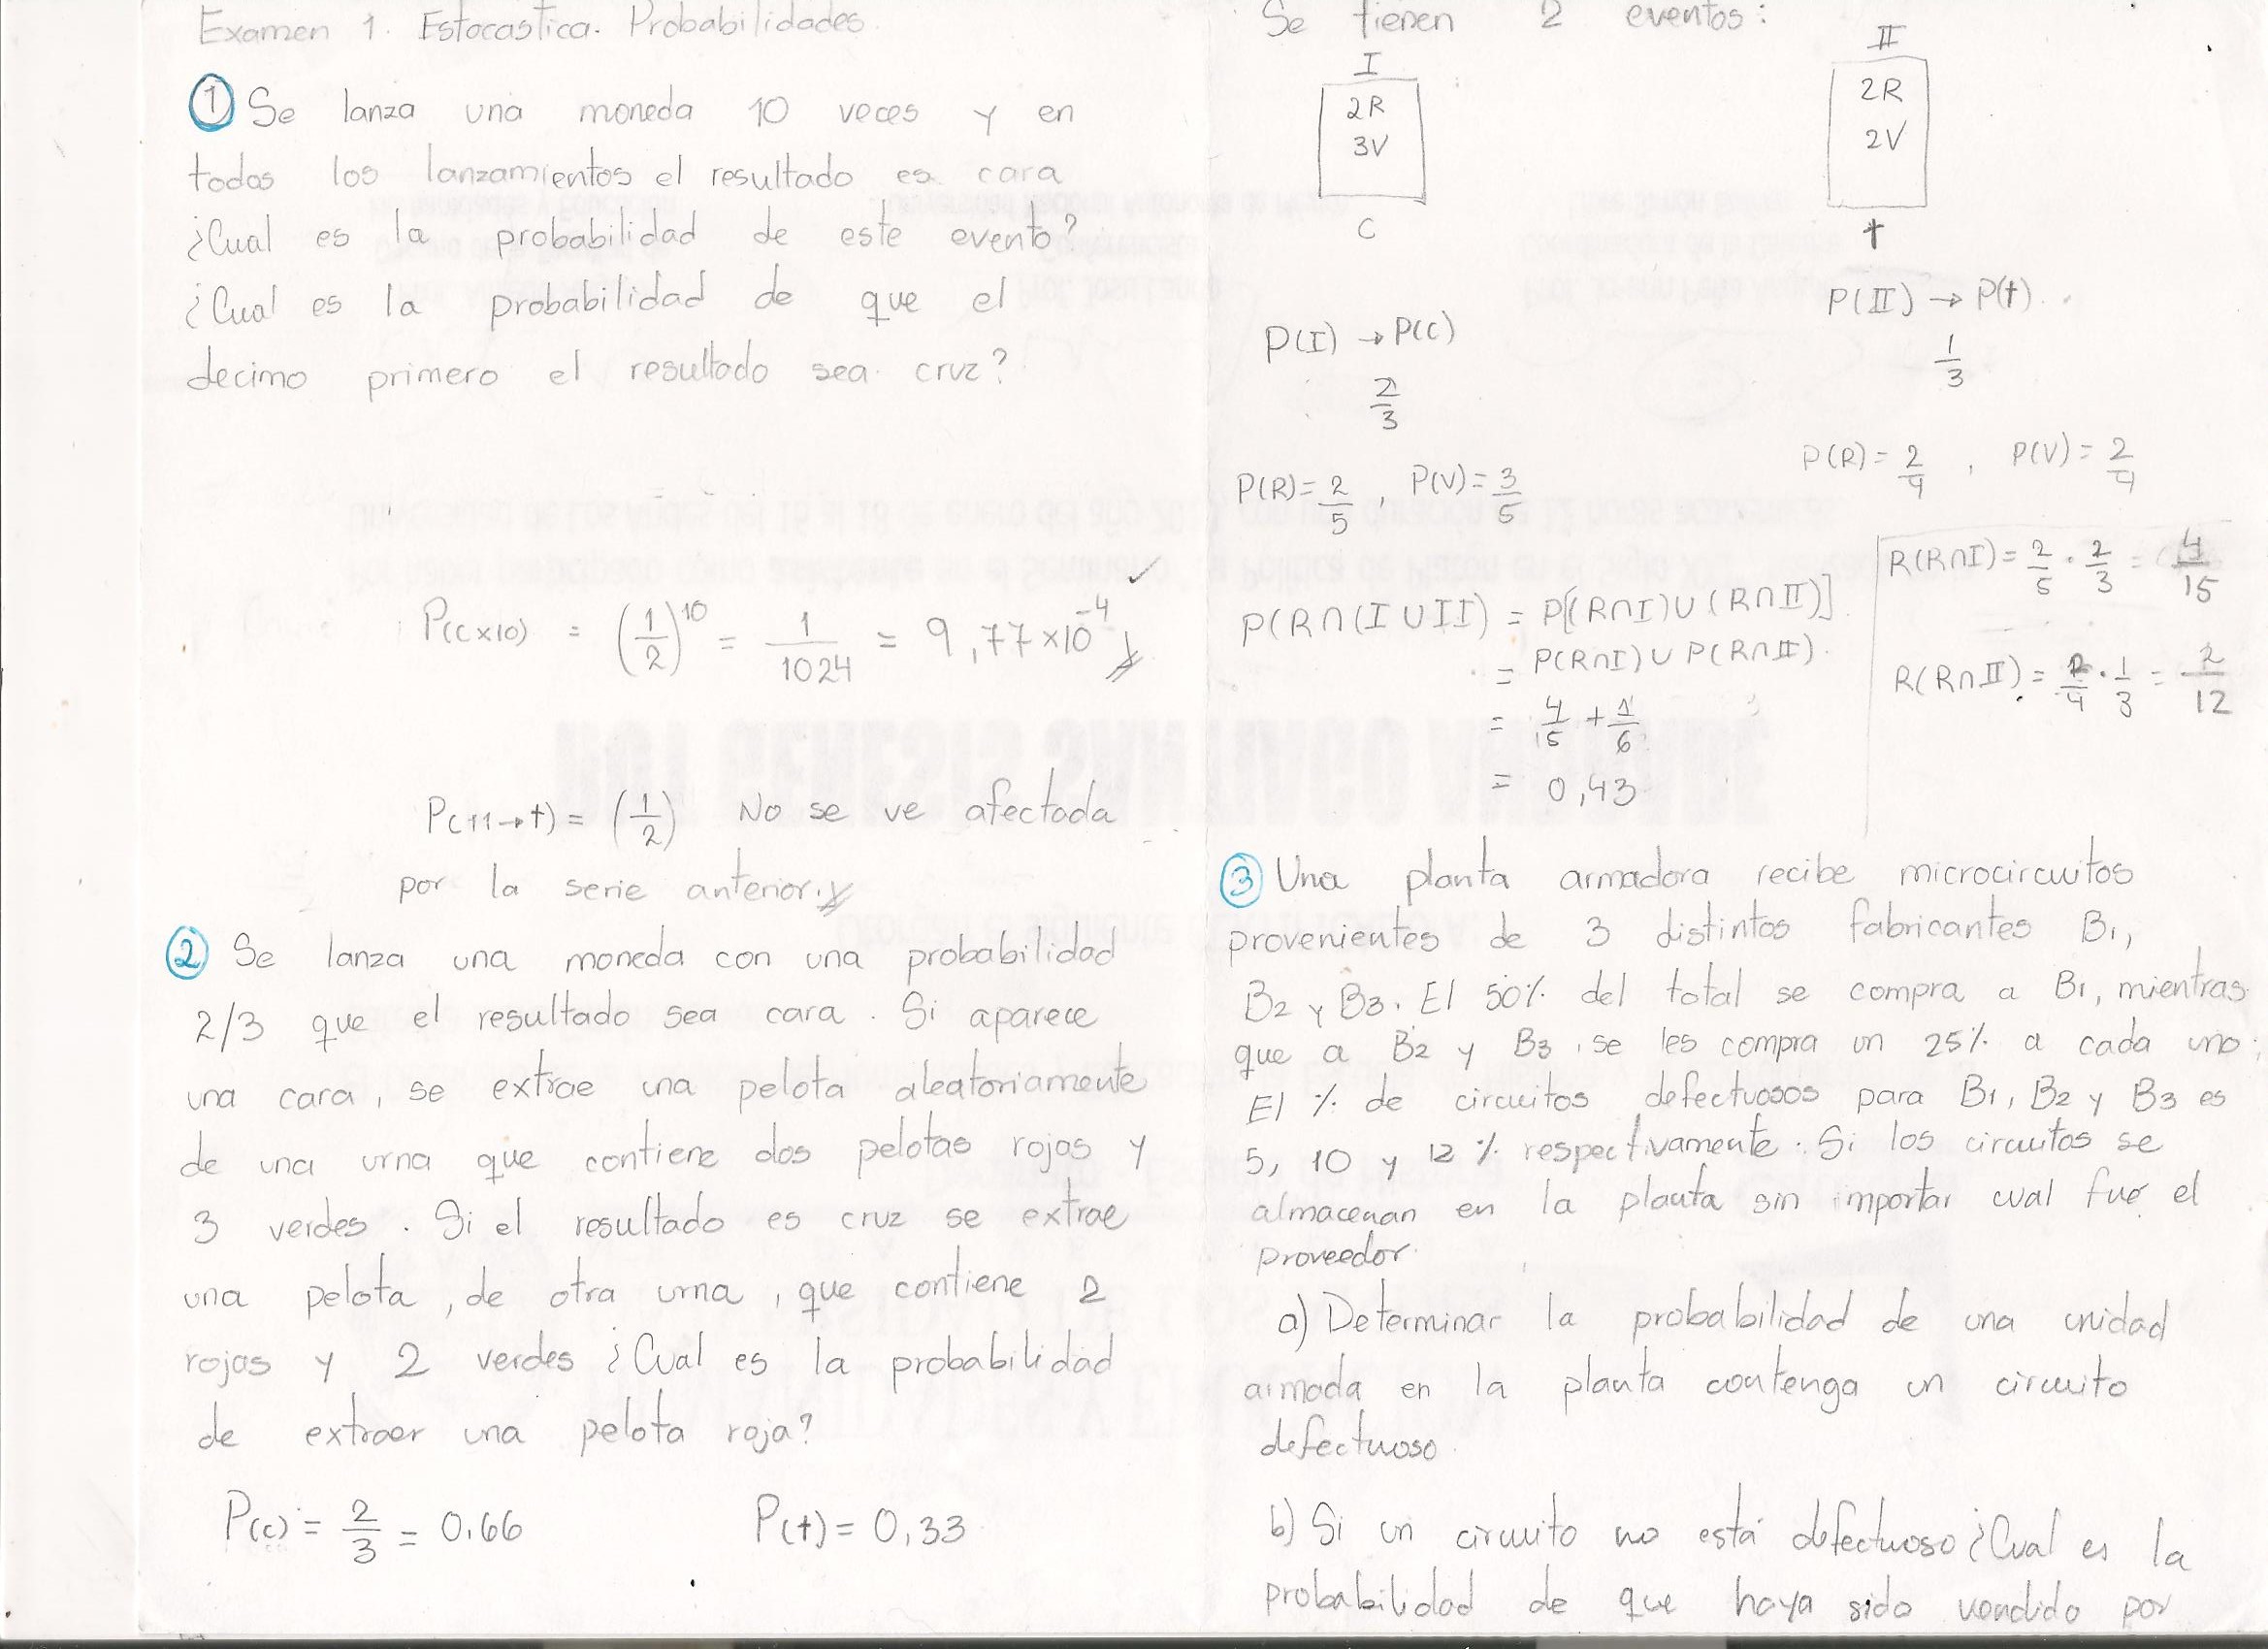 Examen 1. Estocastica. Probabilidades.
① Se lanza una moneda 10 veces y en
todos los lanzamientos el resultado es cara
¿Cual es la probabilidad de este evento?
¿Cual es la probabilidad de que el
decimo primero el resultado sea cruz?
P(c×10) = (1/2)^10 = 1/1024 = 9,77×10^-4
P(11→t) = (1/2) No se ve afectada
por la serie anterior.
② Se lanza una moneda con una probabilidad
2/3 que el resultado sea cara. Si aparece
una cara, se extrae una pelota aleatoriamente
de una urna que contiene dos pelotas rojas y
3 verdes. Si el resultado es cruz se extrae
una pelota, de otra urna, que contiene 2
rojas y 2 verdes ¿Cual es la probabilidad
de extraer una pelota roja?
P(c) = 2/3 = 0.66 P(t) = 0,33
Se tienen 2 eventos:
I II
2R 2R
3V 2V
C t
P(I) → P(c) P(II) → P(t)
2/3 1/3
P(R)= 2/5 , P(V)= 3/5 P(R)= 2/4 , P(V)= 2/4
P(R∩(I∪II) = P[(R∩I)∪(R∩II)]
= P(R∩I)∪P(R∩II).
= 4/15 + 1/6
= 0,43
R(R∩I) = 2/5 · 2/3 = 4/15
R(R∩II) = 2/4 · 1/3 = 2/12
③ Una planta armadora recibe microcircuitos
provenientes de 3 distintos fabricantes B1,
B2 y B3. El 50% del total se compra a B1, mientras
que a B2 y B3, se les compra un 25% a cada uno;
El % de circuitos defectuosos para B1, B2 y B3 es
5, 10 y 12 % respectivamente. Si los circuitos se
almacenan en la planta sin importar cual fue el
proveedor.
a) Determinar la probabilidad de una unidad
armada en la planta contenga un circuito
defectuoso.
b) Si un circuito no está defectuoso ¿Cual es la
probabilidad de que haya sido vendido por